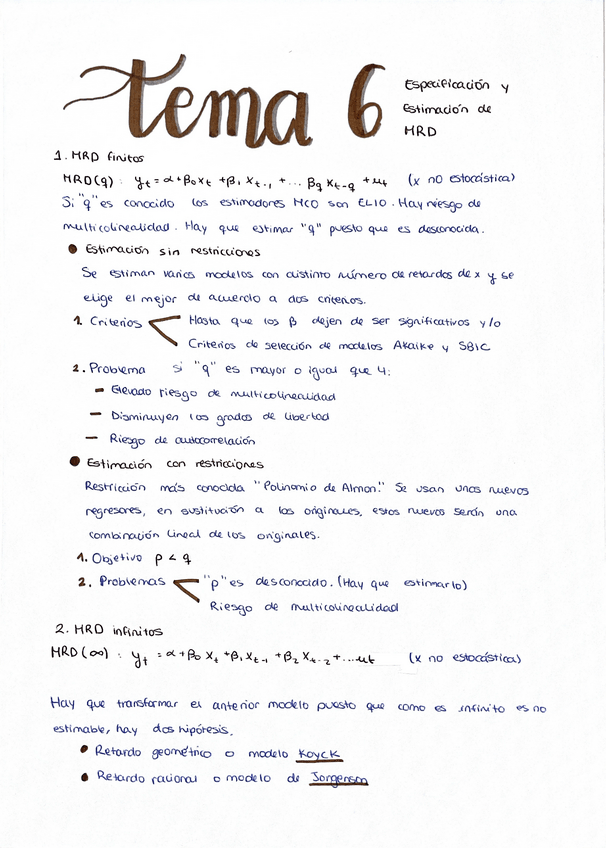 tema 6
Especificación y
Estimación de
MRD
1. MRD finitos
MRD(q) : yt = α + β0 xt + β1 xt-1 + ... βq xt-q + ut (x no estocástica)
Si "q" es conocido los estimadores MCO son ELIO. Hay riesgo de
multicolinealidad. Hay que estimar "q" puesto que es desconocida.
● Estimación sin restricciones
Se estiman varios modelos con distinto número de retardos de x y se
elige el mejor de acuerdo a dos criterios.
1. Criterios < Hasta que los β dejen de ser significativos y/o
Criterios de selección de modelos Akaike y SBIC
2. Problema si "q" es mayor o igual que 4:
- Elevado riesgo de multicolinealidad
- Disminuyen los grados de libertad
- Riesgo de autocorrelación
● Estimación con restricciones
Restricción más conocida "Polinomio de Almon." Se usan unos nuevos
regresores, en sustitución a los originales, estos nuevos serán una
combinación lineal de los originales.
1. Objetivo p < q
2. Problemas < "p" es desconocido. (Hay que estimarlo)
Riesgo de multicolinealidad
2. MRD infinitos
MRD(∞) : yt = α + β0 xt + β1 xt-1 + β2 xt-2 + ... ut (x no estocástica)
Hay que transformar el anterior modelo puesto que como es infinito es no
estimable, hay dos hipótesis.
● Retardo geométrico o modelo Koyck
● Retardo racional o modelo de Jorgenson